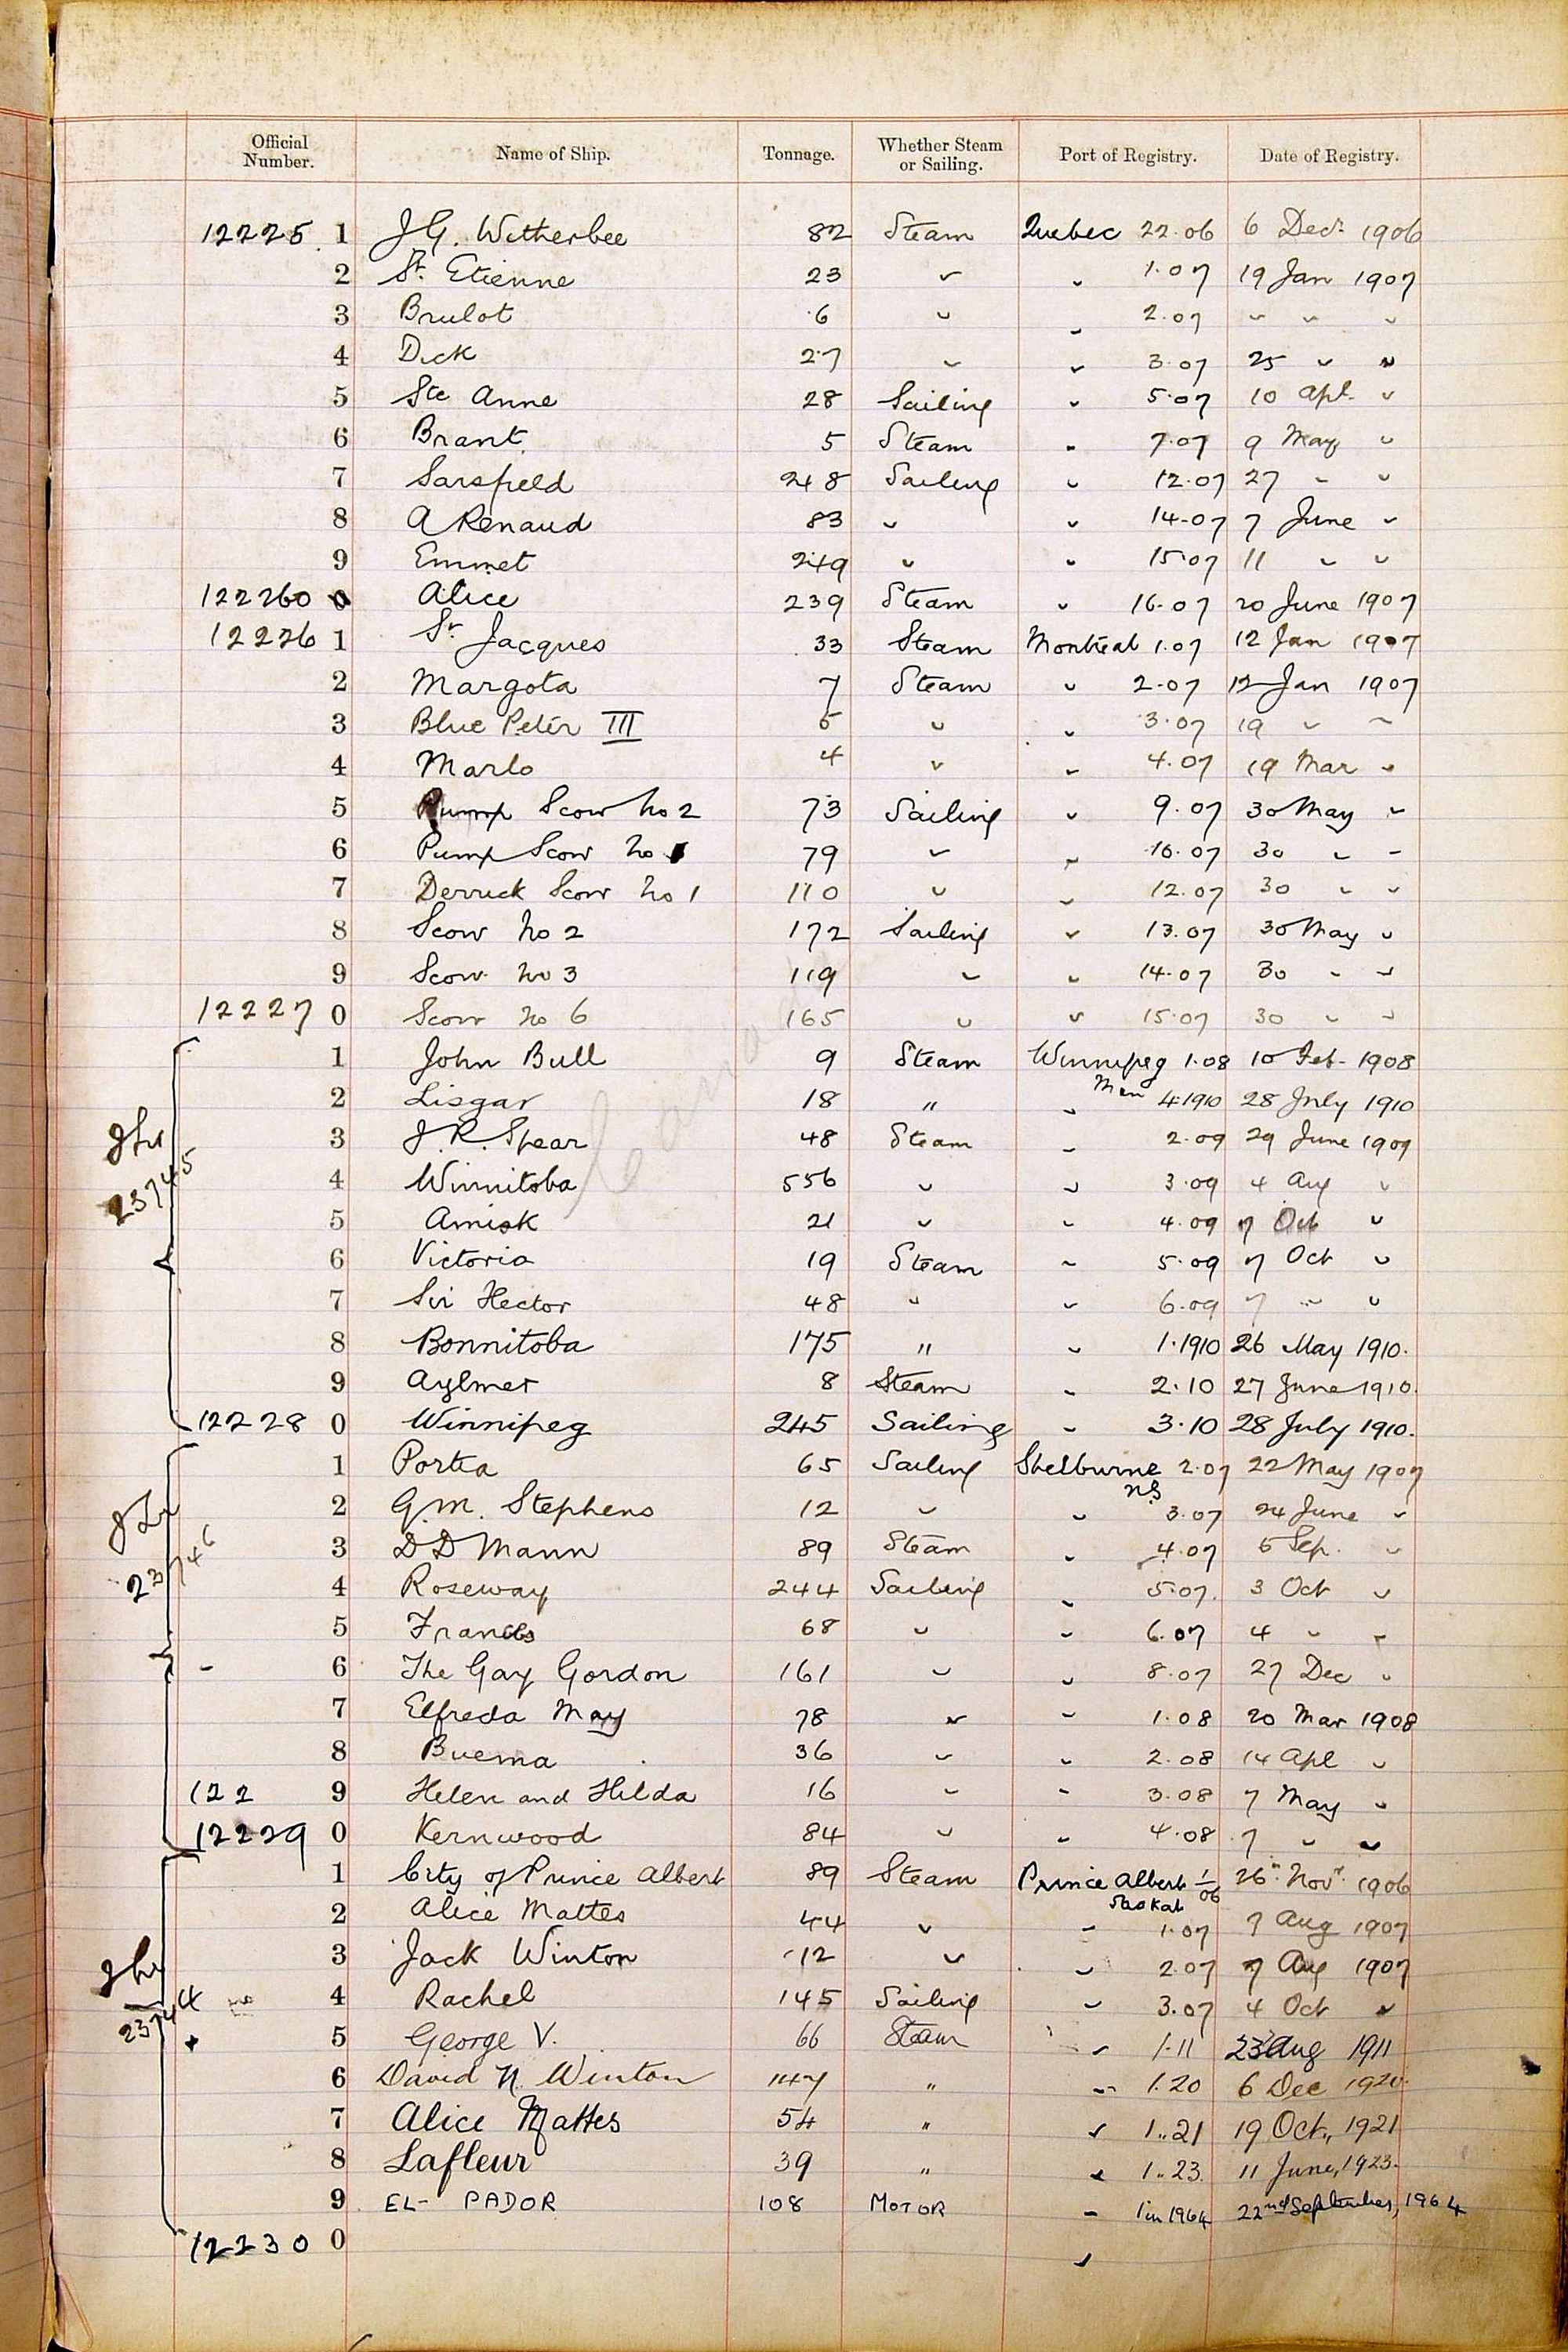 Official Number. Name of Ship. Tonnage. Whether Steam or Sailing. Port of Registry. Date of Registry.
12225 1 J.G. Witherbee 82 Steam Quebec 22.06 6 Decr 1906
2 St. Etienne 23 " " 1.07 19 Jan 1907
3 Brulot 6 " " 2.07 " " "
4 Dick 27 " " 3.07 25 " "
5 Ste Anne 28 Sailing " 5.07 10 Apl. "
6 Brant 5 Steam " 7.07 9 May "
7 Sarsfield 248 Sailing " 12.07 27 " "
8 A Renaud 83 " " 14-07 7 June "
9 Emmet 249 " " 15.07 11 " "
122260 0 Alice 239 Steam " 16.07 20 June 1907
12226 1 St. Jacques 33 Steam Montreal 1.07 12 Jan 1907
2 Margota 7 Steam " 2.07 12 Jan 1907
3 Blue Peter III 5 " " 3.07 19 " "
4 Marlo 4 " " 4.07 19 Mar "
5 Pump Scow No 2 73 Sailing " 9.07 30 May "
6 Pump Scow No 1 79 " " 10.07 30 " "
7 Derrick Scow No 1 110 " " 12.07 30 " "
8 Scow No 2 172 Sailing " 13.07 30 May "
9 Scow No 3 119 " " 14.07 30 " "
12227 0 Scow No 6 165 " " 15.07 30 " "
1 John Bull 9 Steam Winnipeg 1.08 10 Feb. 1908
Man
2 Lisgar 18 " " 4.1910 28 July 1910
3 J.R. Spear 48 Steam " 2.09 29 June 1909
23745
4 Winnitoba 556 " " 3.09 4 Aug "
5 Amisk 21 " " 4.09 7 Oct "
6 Victoria 19 Steam " 5.09 7 Oct "
7 Sir Hector 48 " " 6.09 7 " "
8 Bonnitoba 175 " " 1.1910 26 May 1910.
9 Aylmer 8 Steam " 2.10 27 June 1910.
12228 0 Winnipeg 245 Sailing " 3.10 28 July 1910.
1 Portia 65 Sailing Shelburne 2.07 22 May 1907
N.S
2 G.M. Stephens 12 " " 3.07 24 June "
3 D D Mann 89 Steam " 4.07 5 Sep. "
23746
4 Roseway 244 Sailing " 5.07. 3 Oct "
5 68 " " 6.07 4 " "
- 6 The Gay Gordon 161 " " 8.07 27 Dec "
7 Elfreda May 78 " " 1.08 20 Mar 1908
8 Buema 36 " " 2.08 14 Apl "
122 9 Helen and Hilda 16 " " 3.08 7 May "
12229 0 Kernwood 84 " " 4.08 7 " "
1 City of Prince Albert 89 Steam Prince Albert 1/06 26th Novr 1906
Saskat
2 Alice Mattes 44 " " 1.07 7 Aug 1907
3 Jack Winton 12 " " 2.07 7 Aug 1907
4 Rachel 145 Sailing " 3.07 4 Oct "
23744
5 George V. 66 Steam " 1.11 23 Aug 1911
6 David N. Winton 147 " " 1.20 6 Dec 1920.
7 Alice Mattes 54 " " 1..21 19 Oct., 1921
8 Lafleur 39 " " 1..23. 11 June, 1923.
9 EL- PADOR 108 MOTOR " 1 in 1964 22nd September, 1964
12230 0 "
Canada